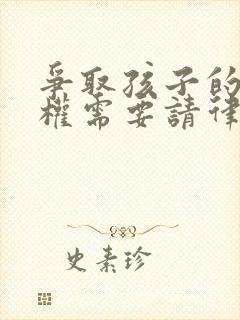 爭取孩子的
權需要請律
史素珍